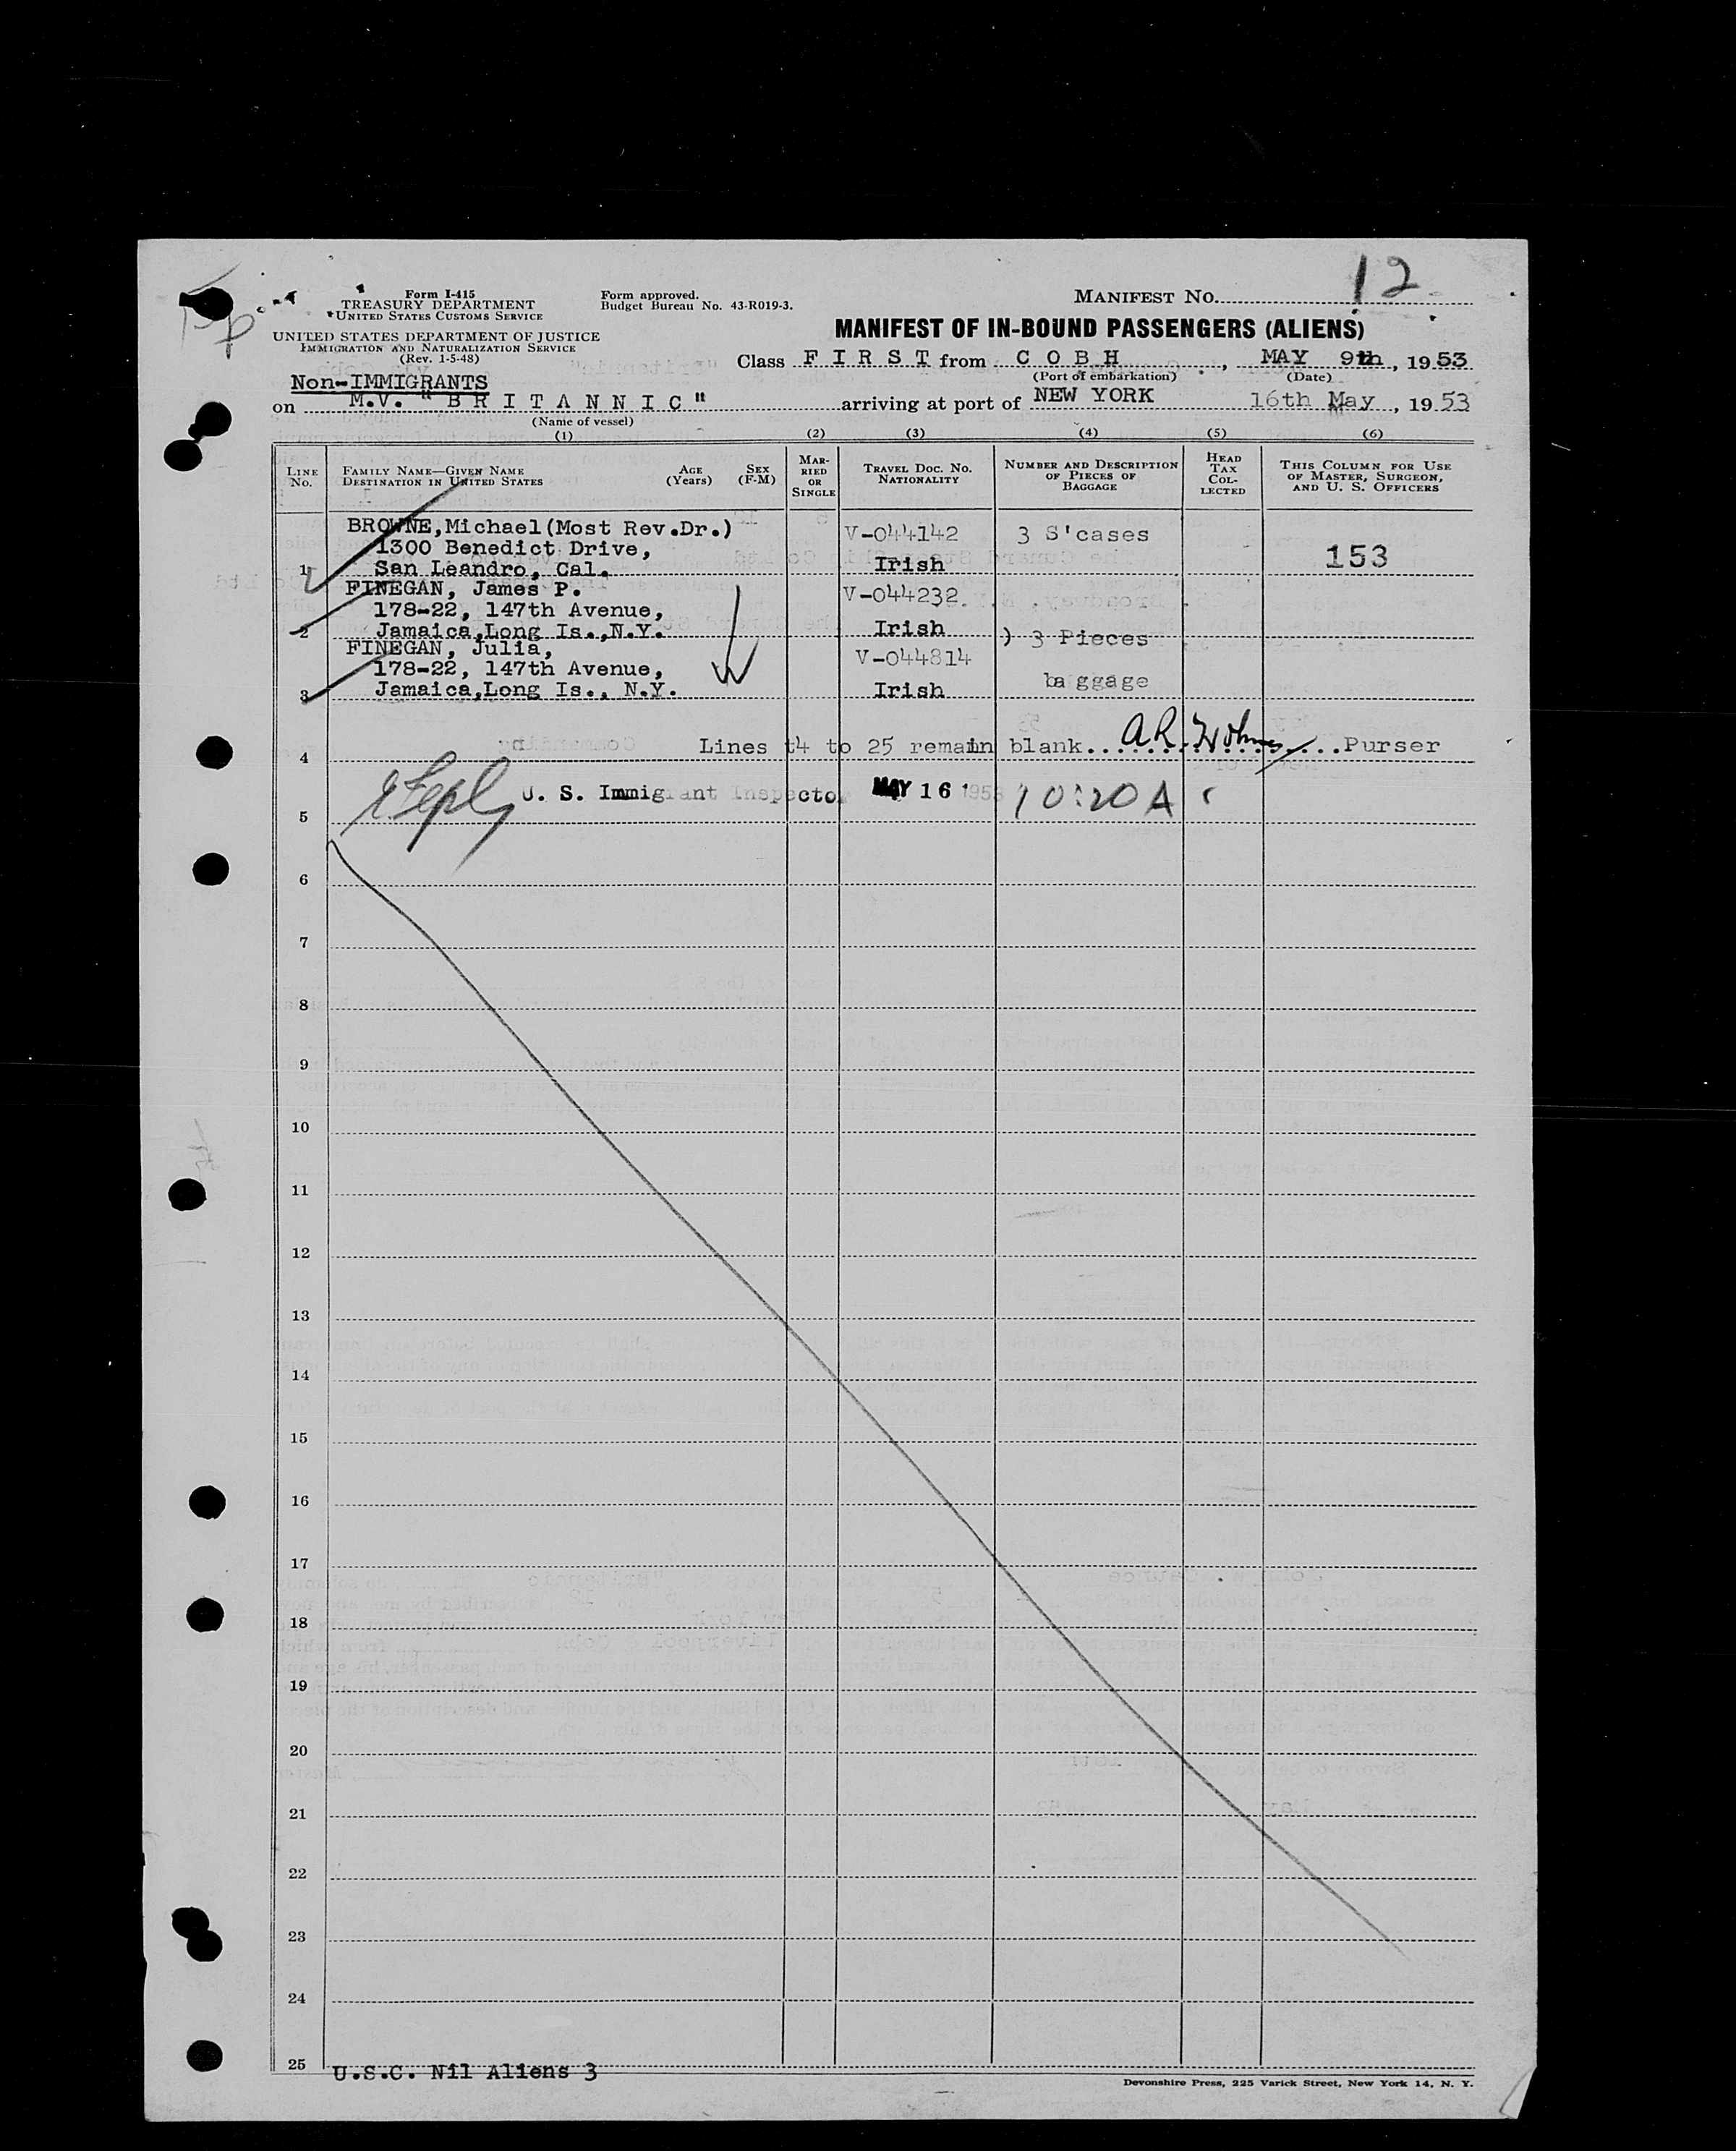 12
Form I-415
TREASURY DEPARTMENT
UNITED STATES CUSTOMS SERVICE
Form approved.
Budget Bureau No. 43-R019-3.
MANIFEST No.
UNITED STATES DEPARTMENT OF JUSTICE
IMMIGRATION AND NATURALIZATION SERVICE
(Rev. 1-5-48)
MANIFEST OF IN-BOUND PASSENGERS (ALIENS)
Class F I R S T from C O B H, MAY 9th, 1953
(Port of embarkation) (Date)
Non-IMMIGRANTS
on M.V. "B R I T A N N I C" arriving at port of NEW YORK 16th May, 1953
(Name of vessel)
(1) (2) (3) (4) (5) (6)
LINE No. FAMILY NAME—GIVEN NAME DESTINATION IN UNITED STATES AGE (Years) SEX (F-M) MARRIED OR SINGLE TRAVEL DOC. No. NATIONALITY NUMBER AND DESCRIPTION OF PIECES OF BAGGAGE HEAD TAX COLLECTED THIS COLUMN FOR USE OF MASTER, SURGEON, AND U. S. OFFICERS
BROWNE, Michael (Most Rev. Dr.) V-044142 3 S'cases
1300 Benedict Drive, 153
1 San Leandro, Cal. Irish
FINEGAN, James P. V-044232
178-22, 147th Avenue,
2 Jamaica, Long Is., N.Y. Irish ) 3 Pieces
FINEGAN, Julia, V-044814
178-22, 147th Avenue,
3 Jamaica, Long Is., N.Y. Irish baggage
4 Lines 4 to 25 remain blank.... A.R. ....Purser
5 U. S. Immigrant Inspector MAY 16 1953 10:20 A
6
7
8
9
10
11
12
13
14
15
16
17
18
19
20
21
22
23
24
25
U.S.C. Nil Aliens 3
Devonshire Press, 225 Varick Street, New York 14, N. Y.